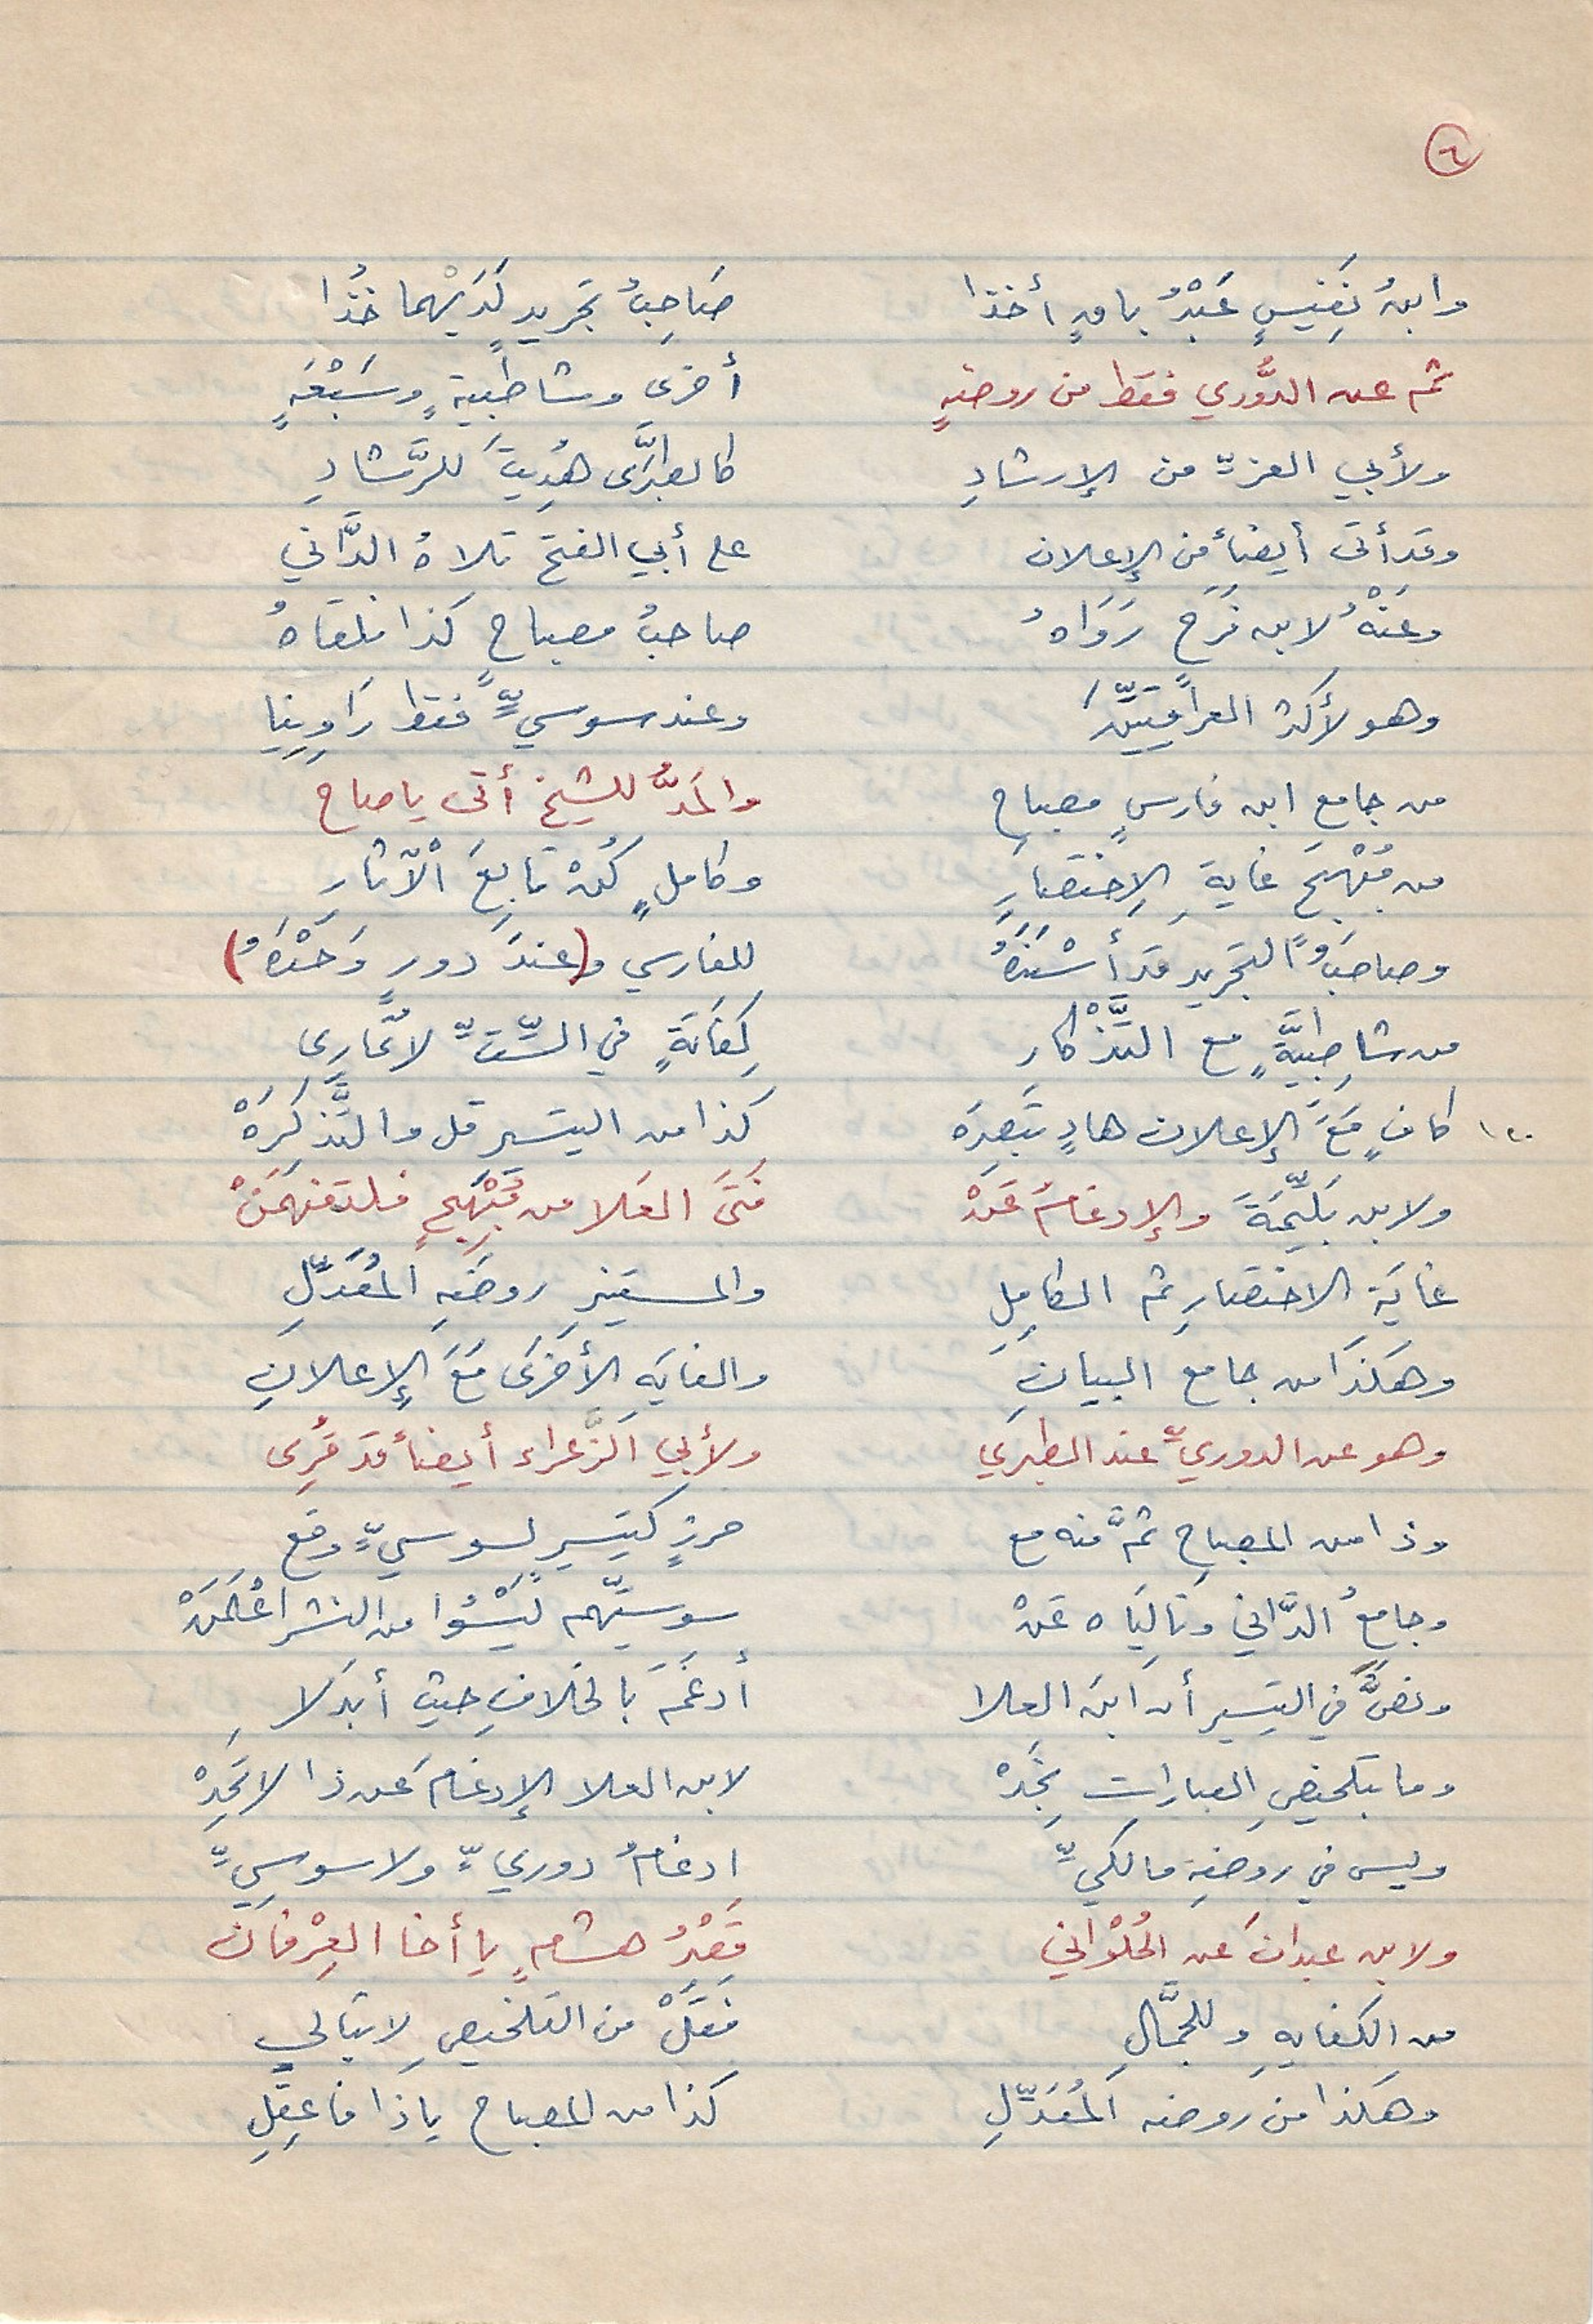 ٦
وابنُ نَفِيسٍ عَبْدُ باقٍ أخذا صَاحِبُ تجريدٍ لَدَيْهما خُذَا
ثم عن الدُّوري فقط من روضةٍ أخرى وشاطبيةٍ وسَبْعَةٍ
ولأبي العزّ من الإرشادِ كالطبرَّى هُدِيتَ للرَّشادِ
وقد أتى أيضاً من الإعلان على أبي الفتح تلاهُ الدَّاني
وعَنْهُ لابن فَرَحٍ رَوَاهُ صاحبُ مصباحٍ كذا نلقَاهُ
وهو لأكثر العراقيِّينَ وعند سوسيٍّ فقط رَاوِينِا
من جامع ابن فارسٍ مصباحِ والمَدُّ للشيخ أتى يا صاح
من مُبْهجَ غايةِ الاِختصارِ وكاملٍ كُنْ تابِعَ الْآثارِ
وصاحبُ التجريدِ قد أَسْنَدَهُ للفارسي و(عندَ دورٍ وَحْدَهُ)
من شاطِبيَّةٍ مع التَّذْكارِ كِفَايَةٍ في السِّتِّ لا تُمَارِى
١٢٠ كافٍ مَعَ الإعلان هادٍ تبصِرَه كذا من التيسير قل والتَّذكِرَهْ
ولابن بَلِّيمَةَ والإدغامُ عَنْ فَتَى العَلا من مُبْهِجٍ فلتفهَمَنْ
غايَةِ الاختصارِ ثم الكامِلِ والمستنيرِ روضَةِ المُعَدِّلِ
وهكذَا من جامع البيانِ والغايَةِ الأخرَى مَعَ الإعلانِ
وهو عن الدوريِّ عند الطبري ولأبي الزَّعراء أيضاً قد قُرِى
وذا من المصباحِ ثمَّ منه مع حرزٍ كتيسيرٍ لسوسيٍّ وقع
وجامعُ الدَّاني وتالِيَاه عَنْ سوسيِّهم لَيْسُوا من النشر اعْلَمَنْ
ونصَّ في التيسيرِ أن ابنَ العلا أدغَمَ بالخلافِ حيث أبدَلا
وما بتلخيصِ العبارات نَجِدْ لابن العلا الإدغامَ عن ذا لا تَحِدْ
وليس في روضةِ مالكيِّ ادغامُ دوريٍّ ولا سوسيِّ
ولابن عبدانَ عن الحُلْواني قَصْرُ هشامٍ يا أخا العِرْفانِ
من الكفايةِ وللجمَّالِ فَقُلْ من التلخيصِ لا تبالي
وهكذا من روضة المُعَدِّلِ كذا من المصباح يا ذا فاعقِلِ